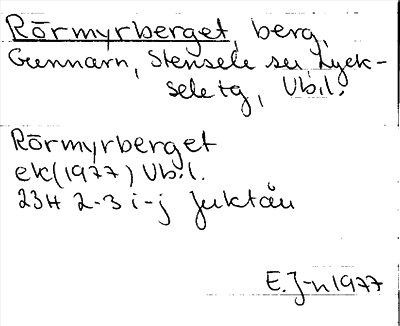 Rörmyrberget, berg,
Gunnarn, Stensele sn Lyck-
sele tg, Vb.l.
Rörmyrberget
ek (1977) Vb.l.
23H 2-3 i-j Juktån
E. J-n 1977